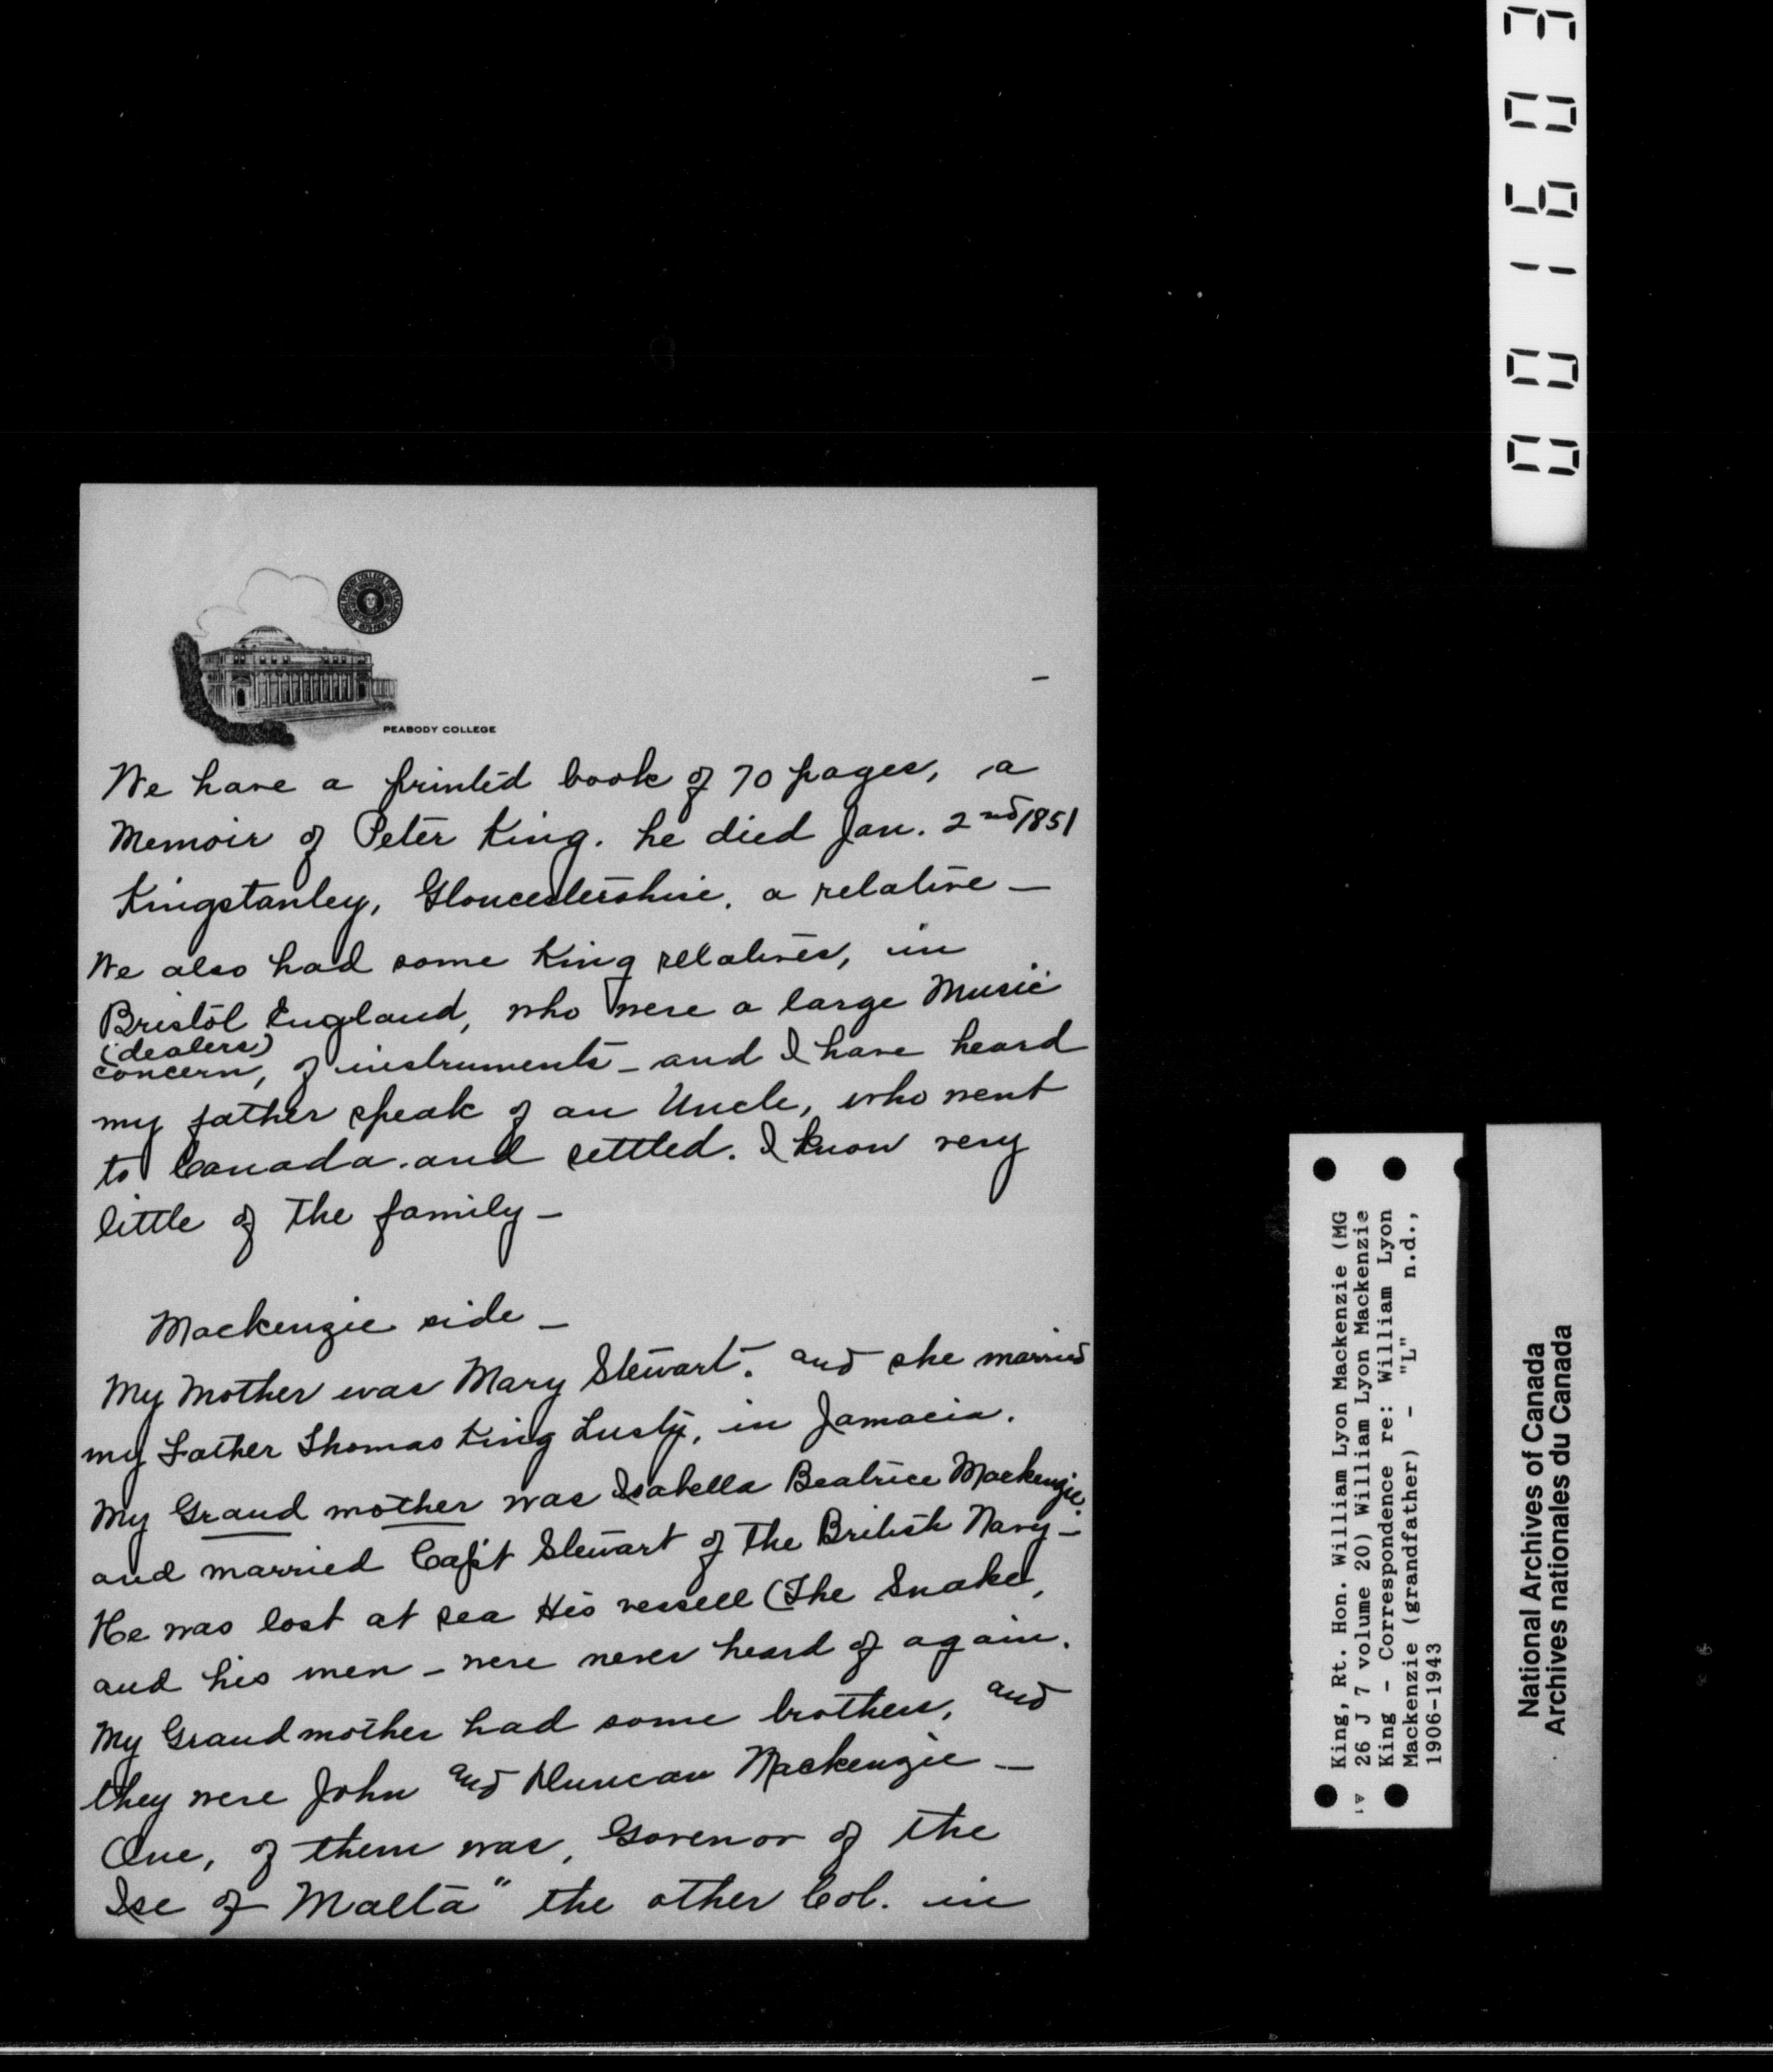 001603
PEABODY COLLEGE
We have a printed book of 70 pages, a
Memoir of Peter King. he died Jan. 2nd 1851
Kingstanley, Gloucestershire. a relative —
We also had some King relatives, in
Bristol England, who were a large Music
(dealers)
concern, of instruments - and I have heard
my father speak of an Uncle, who went
to Canada. and settled. I know very
little of the family -
Mackenzie side -
My Mother was Mary Stewart. and she married
my Father Thomas King Lusty, in Jamacia.
My Grand mother was Isabella Beatrice Mackenzie
and married Capt Stewart of the British Navy -
He was lost at sea His vessell (The Snake,
and his men - were never heard of again.
My Grandmother had some brothers, and
they were John and Duncan Mackenzie —
One, of them was, Govenor of the
Ise of Malta" the other Col. in
King, Rt. Hon. William Lyon Mackenzie (MG
26 J 7 volume 20) William Lyon Mackenzie
King - Correspondence re: William Lyon
Mackenzie (grandfather) - "L" n.d.,
1906-1943
National Archives of Canada
Archives nationales du Canada